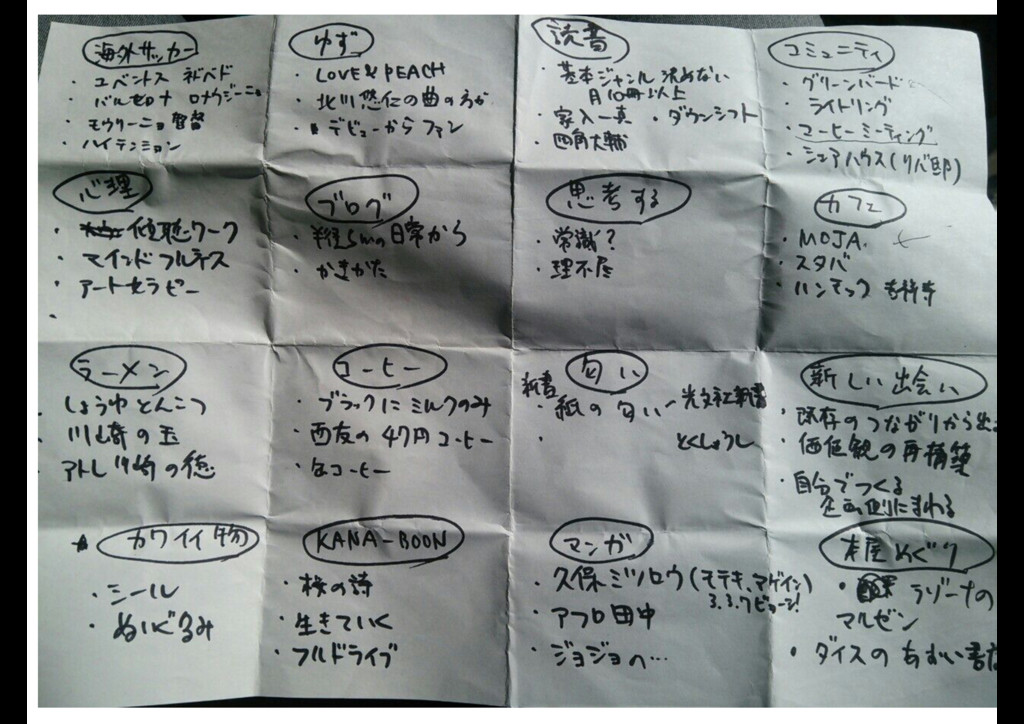 海外サッカー
・ユベントス ネドベド
・バルセロナ ロナウジーニョ
・モウリーニョ監督
・ハイテンション
ゆず
・LOVE & PEACH
・北川悠仁の曲の方が
・デビューからファン
読書
・基本ジャンル決めない
月10冊以上
・家入一真 ・ダウンシフト
・四角大輔
コミュニティ
・グリーンバード
・ライトリング
・コーヒーミーティング
・シェアハウス(リバ邸)
心理
・傾聴ワーク
・マインドフルネス
・アートセラピー
・
ブログ
・半径5mの日常から
・かきかた
思考する
・常識?
・理不尽
カフェ
・MOJA
・スタバ
・ハンモック 吉祥寺
ラーメン
・しょうゆとんこつ
・川崎の玉
・アトレ川崎の徳
コーヒー
・ブラックにミルクのみ
・西友の47円コーヒー
・缶コーヒー
匂い
新書
・紙の匂い 光文社新書
・ とくしょうし
新しい出会い
・既存のつながりから出
・価値観の再構築
・自分でつくる
企画側にまわる
カワイイ物
・シール
・ぬいぐるみ
KANA-BOON
・桜の詩
・生きていく
・フルドライブ
マンガ
・久保ミツロウ(モテキ、アゲイン)
3.3.7ビョーシ!
・アフロ田中
・ジョジョの…
本屋めぐり
・ラゾーナの
マルゼン
・ダイスのあおい書店